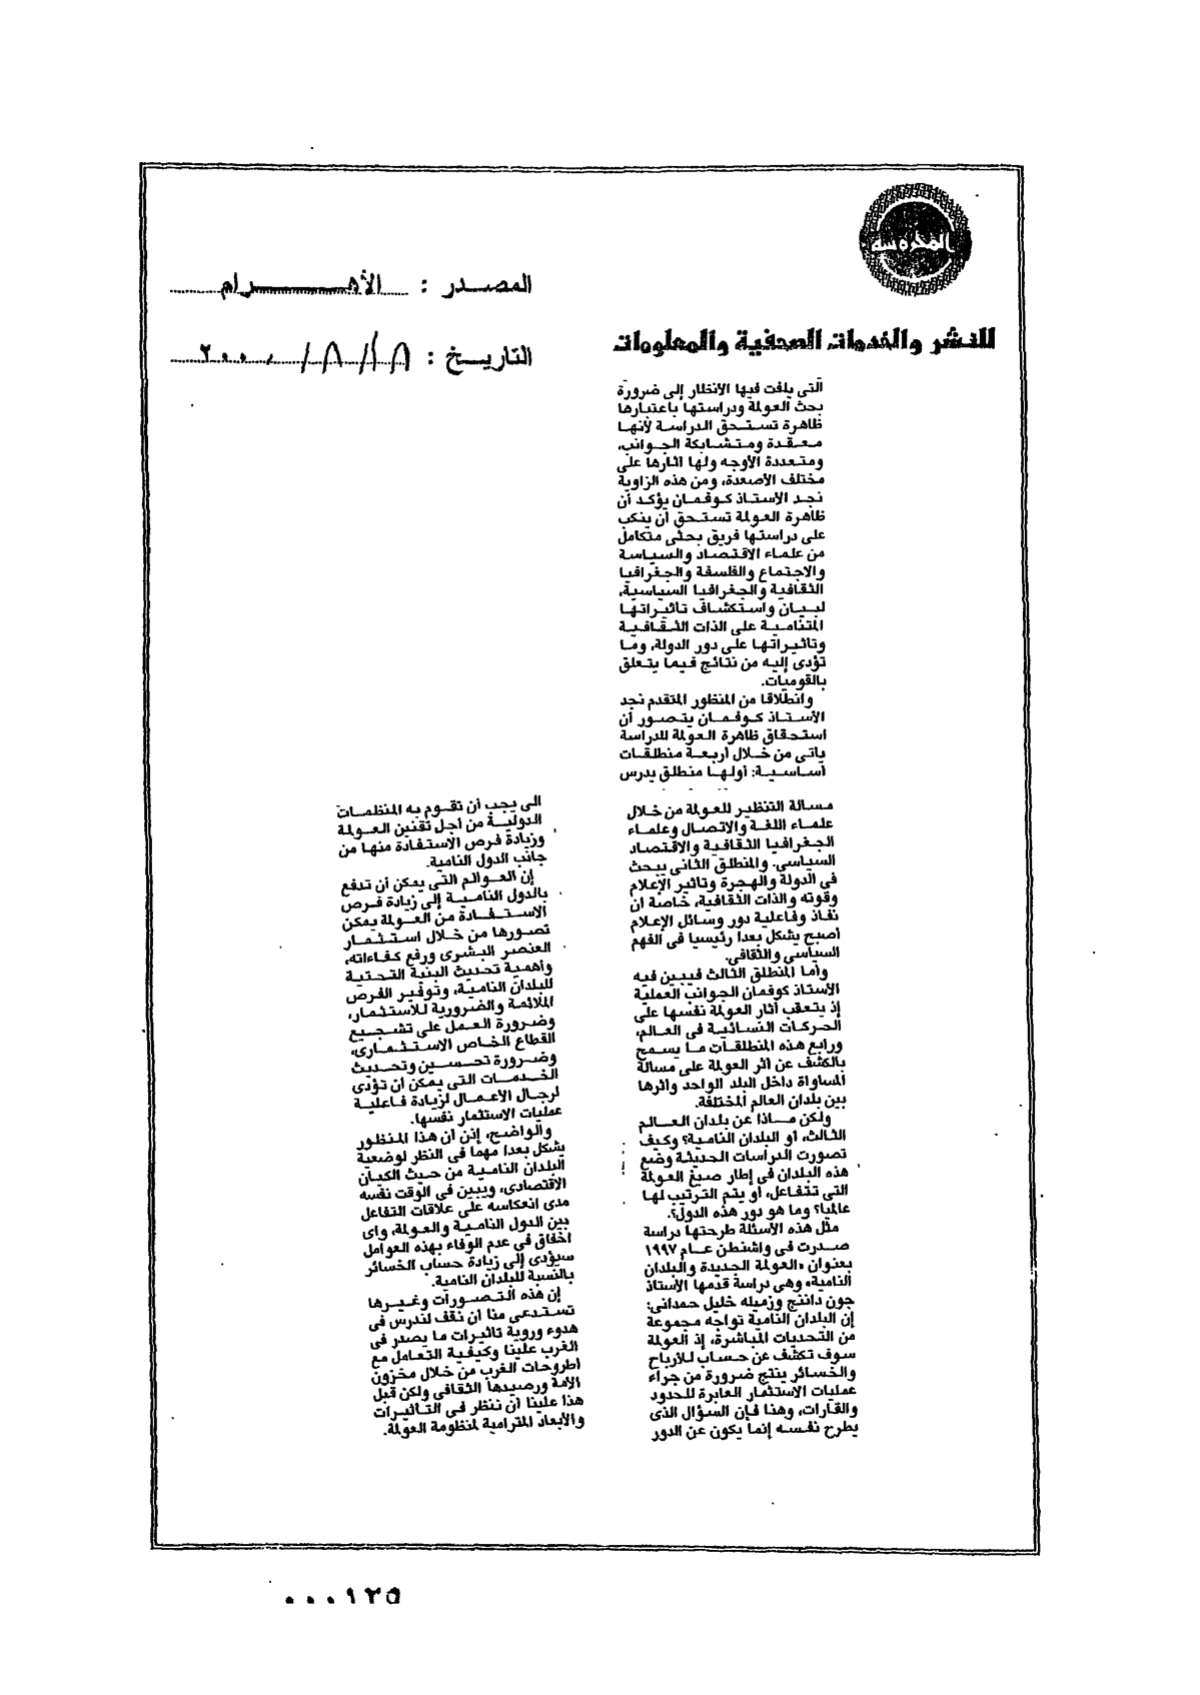 المحروسة
للنشر والخدمات الصحفية والمعلومات
المصدر : الأهرام
التاريخ : ١٨/٨/٢٠٠٠
التى يلفت فيها الأنظار إلى ضرورة
بحث العولمة ودراستها باعتبارها
ظاهرة تستحق الدراسة لأنها
معقدة ومتشابكة الجوانب،
ومتعددة الأوجه ولها آثارها على
مختلف الأصعدة، ومن هذه الزاوية
نجد الاستاذ كوفمان يؤكد أن
ظاهرة العولمة تستحق أن ينكب
على دراستها فريق بحثى متكامل
من علماء الاقتصاد والسياسة
والاجتماع والفلسفة والجغرافيا
الثقافية والجغرافيا السياسية،
لبيان واستكشاف تاثيراتها
المتنامية على الذات الثقافية
وتاثيراتها على دور الدولة، وما
تؤدى إليه من نتائج فيما يتعلق
بالقوميات.
وانطلاقا من المنظور المتقدم نجد
الأستاذ كوفمان يتصور أن
استحقاق ظاهرة العولمة للدراسة
ياتى من خلال أربعة منطلقات
أساسية: أولها منطلق يدرس
مسالة التنظير للعولمة من خلال
علماء اللغة والاتصال وعلماء
الجغرافيا الثقافية والاقتصاد
السياسى. والمنطلق الثانى يبحث
فى الدولة والهجرة وتاثير الإعلام
وقوته والذات الثقافية، خاصة ان
نفاذ وفاعلية دور وسائل الإعلام
أصبح يشكل بعدا رئيسيا فى الفهم
السياسى والثقافى.
وأما المنطلق الثالث فيبين فيه
الأستاذ كوفمان الجوانب العملية
إذ يتعقب آثار العولمة نفسها على
الحركات النسائية فى العالم،
ورابع هذه المنطلقات ما يسمح
بالكشف عن اثر العولمة على مسالة
المساواة داخل البلد الواحد واثرها
بين بلدان العالم المختلفة.
ولكن ماذا عن بلدان العالم
الثالث، أو البلدان النامية؟ وكيف
تصورت الدراسات الحديثة وضع
هذه البلدان فى إطار صيغ العولمة
التى تتفاعل، أو يتم الترتيب لها
عالميا؟ وما هو دور هذه الدول؟.
مثل هذه الأسئلة طرحتها دراسة
صدرت فى واشنطن عام ١٩٩٧
بعنوان «العولمة الجديدة والبلدان
النامية» وهى دراسة قدمها الأستاذ
جون داننج وزميله خليل حمدانى:
إن البلدان النامية تواجه مجموعة
من التحديات المباشرة، إذ العولمة
سوف تكشف عن حساب للأرباح
والخسائر ينتج ضرورة من جراء
عمليات الاستثمار العابرة للحدود
والقارات، وهنا فإن السؤال الذى
يطرح نفسه إنما يكون عن الدور
الى يجب أن تقوم به المنظمات
الدولية من أجل تقنين العولمة
وزيادة فرص الاستفادة منها من
جانب الدول النامية.
إن العوالم التى يمكن أن تدفع
بالدول النامية إلى زيادة فرص
الاستفادة من العولمة يمكن
تصورها من خلال استثمار
العنصر البشرى ورفع كفاءاته،
وأهمية تحديث البنية التحتية
للبلدان النامية، وتوفير الفرص
الملائمة والضرورية للاستثمار،
وضرورة العمل على تشجيع
القطاع الخاص الاستثمارى،
وضرورة تحسين وتحديث
الخدمات التى يمكن أن تؤدى
لرجال الأعمال لزيادة فاعلية
عمليات الاستثمار نفسها.
والواضح، إذن أن هذا المنظور
يشكل بعدا مهما فى النظر لوضعية
البلدان النامية من حيث الكيان
الاقتصادى، ويبين فى الوقت نفسه
مدى انعكاسه على علاقات التفاعل
بين الدول النامية والعولمة، واى
اخفاق فى عدم الوفاء بهذه العوامل
سيؤدى إلى زيادة حساب الخسائر
بالنسبة للبلدان النامية.
إن هذه التصورات وغيرها
تستدعى منا أن نقف لندرس فى
هدوء وروية تاثيرات ما يصدر فى
الغرب علينا وكيفية التعامل مع
اطروحات الغرب من خلال مخزون
الأمة ورصيدها الثقافى ولكن قبل
هذا علينا أن ننظر فى التاثيرات
والأبعاد المترامية لمنظومة العولمة.
٠٠٠١٢٥